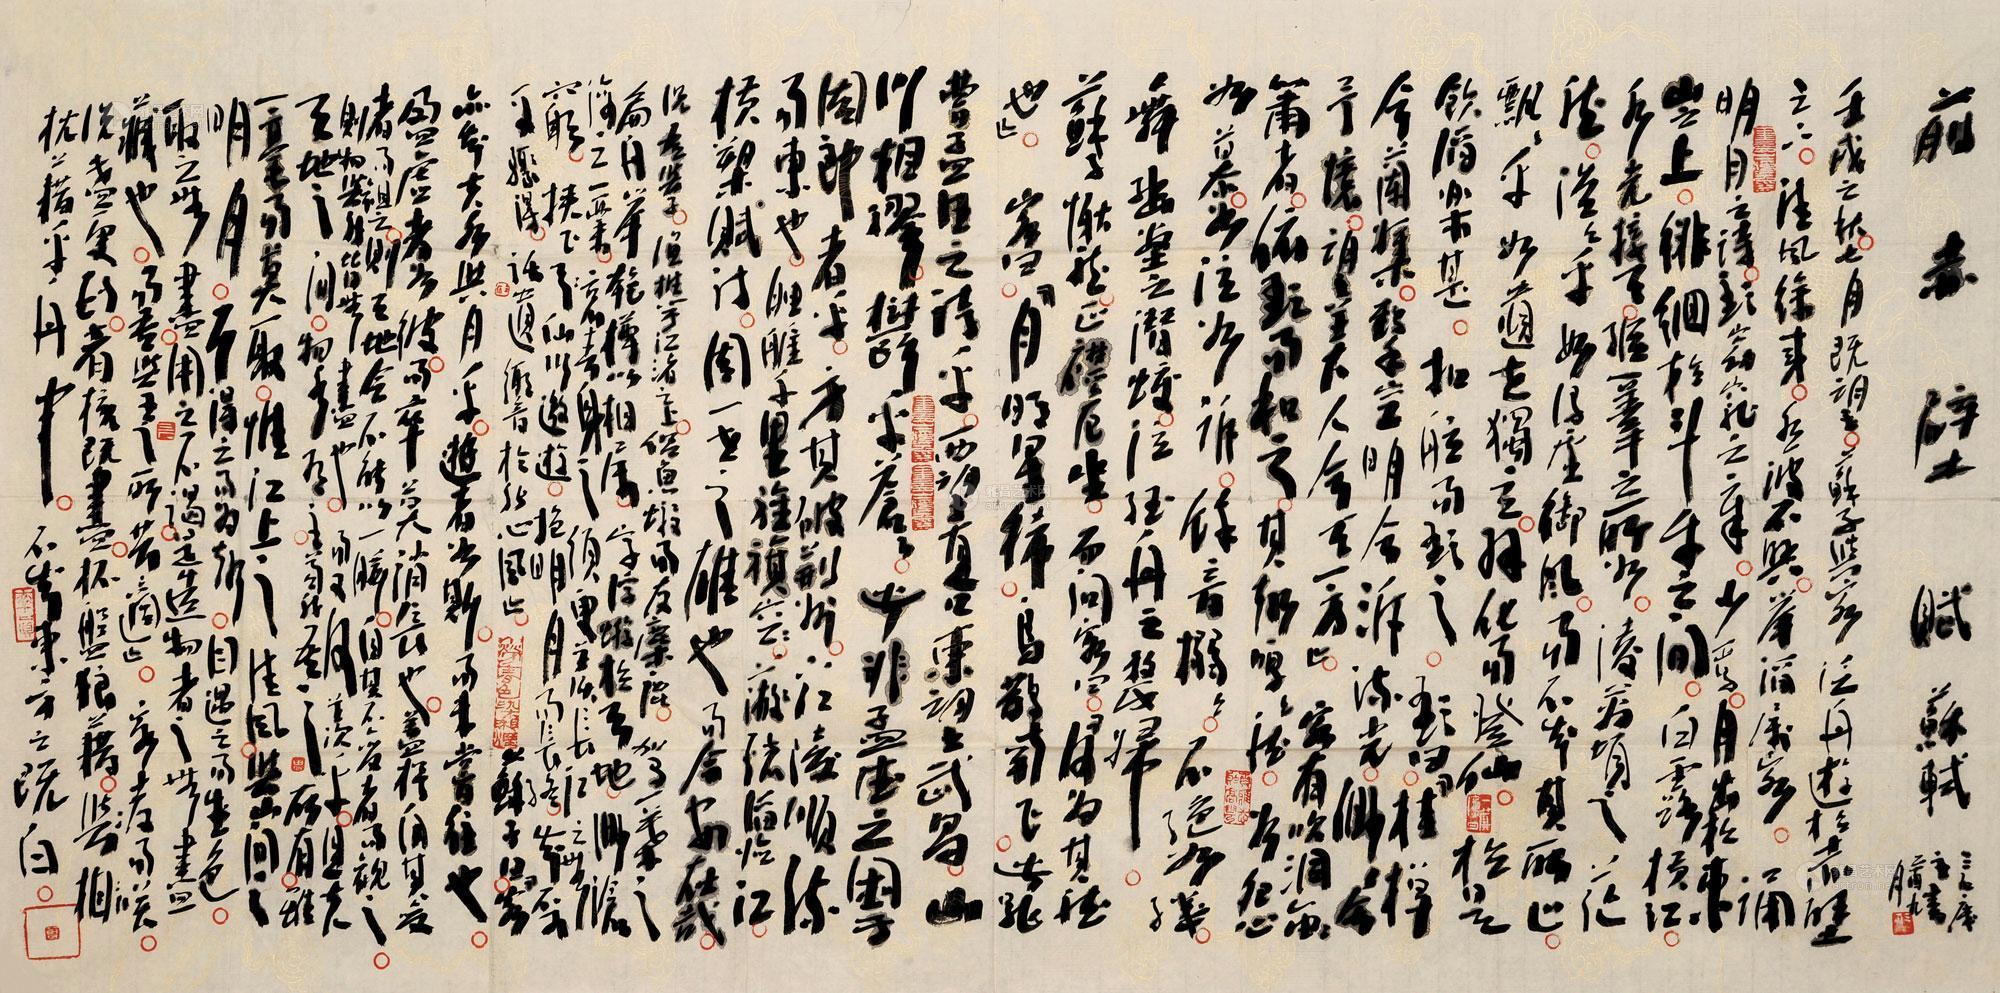 前赤壁賦 蘇軾
壬戌之秋七月既望蘇子與客泛舟遊於赤壁
之下清風徐來水波不興舉酒屬客誦
明月之詩歌窈窕之章少焉月出於東
山之上徘徊於斗牛之間白露橫江
水光接天縱一葦之所如凌萬頃之茫
然浩浩乎如馮虛御風而不知其所止
飄飄乎如遺世獨立羽化而登仙於是
飲酒樂甚扣舷而歌之歌曰桂棹
兮蘭槳擊空明兮泝流光渺渺兮
予懷望美人兮天一方客有吹洞
簫者倚歌而和之其聲嗚嗚然如怨
如慕如泣如訴餘音嫋嫋不絕如縷
舞幽壑之潛蛟泣孤舟之嫠婦
蘇子愀然正襟危坐而問客曰何為其然
也客曰月明星稀烏鵲南飛此非
曹孟德之詩乎西望夏口東望武昌山
川相繆鬱乎蒼蒼此非孟德之困于
周郎者乎方其破荊州下江陵順流
而東也舳艫千里旌旗蔽空釃酒臨江
橫槊賦詩固一世之雄也而今安在哉
況吾與子漁樵於江渚之上侶魚蝦而友麋鹿駕一葉之
扁舟舉匏樽以相屬寄蜉蝣於天地渺滄
海之一粟哀吾生之須臾羨長江之無
窮挾飛仙以遨遊抱明月而長終知不
可驟得託遺響於悲風蘇子曰客
亦知夫水與月乎逝者如斯而未嘗往也
盈虛者如彼而卒莫消長也蓋將自其變
者而觀之則天地曾不能以一瞬自其不變者而觀之
則物與我皆無盡也而又何羨乎且夫
天地之間物各有主苟非吾之所有雖
一毫而莫取惟江上之清風與山間之
明月耳得之而為聲目遇之而成色
取之無盡用之不竭是造物者之無盡
藏也而吾與子之所共適客喜而笑
洗盞更酌肴核既盡杯盤狼藉相與
枕藉乎舟中不知東方之既白